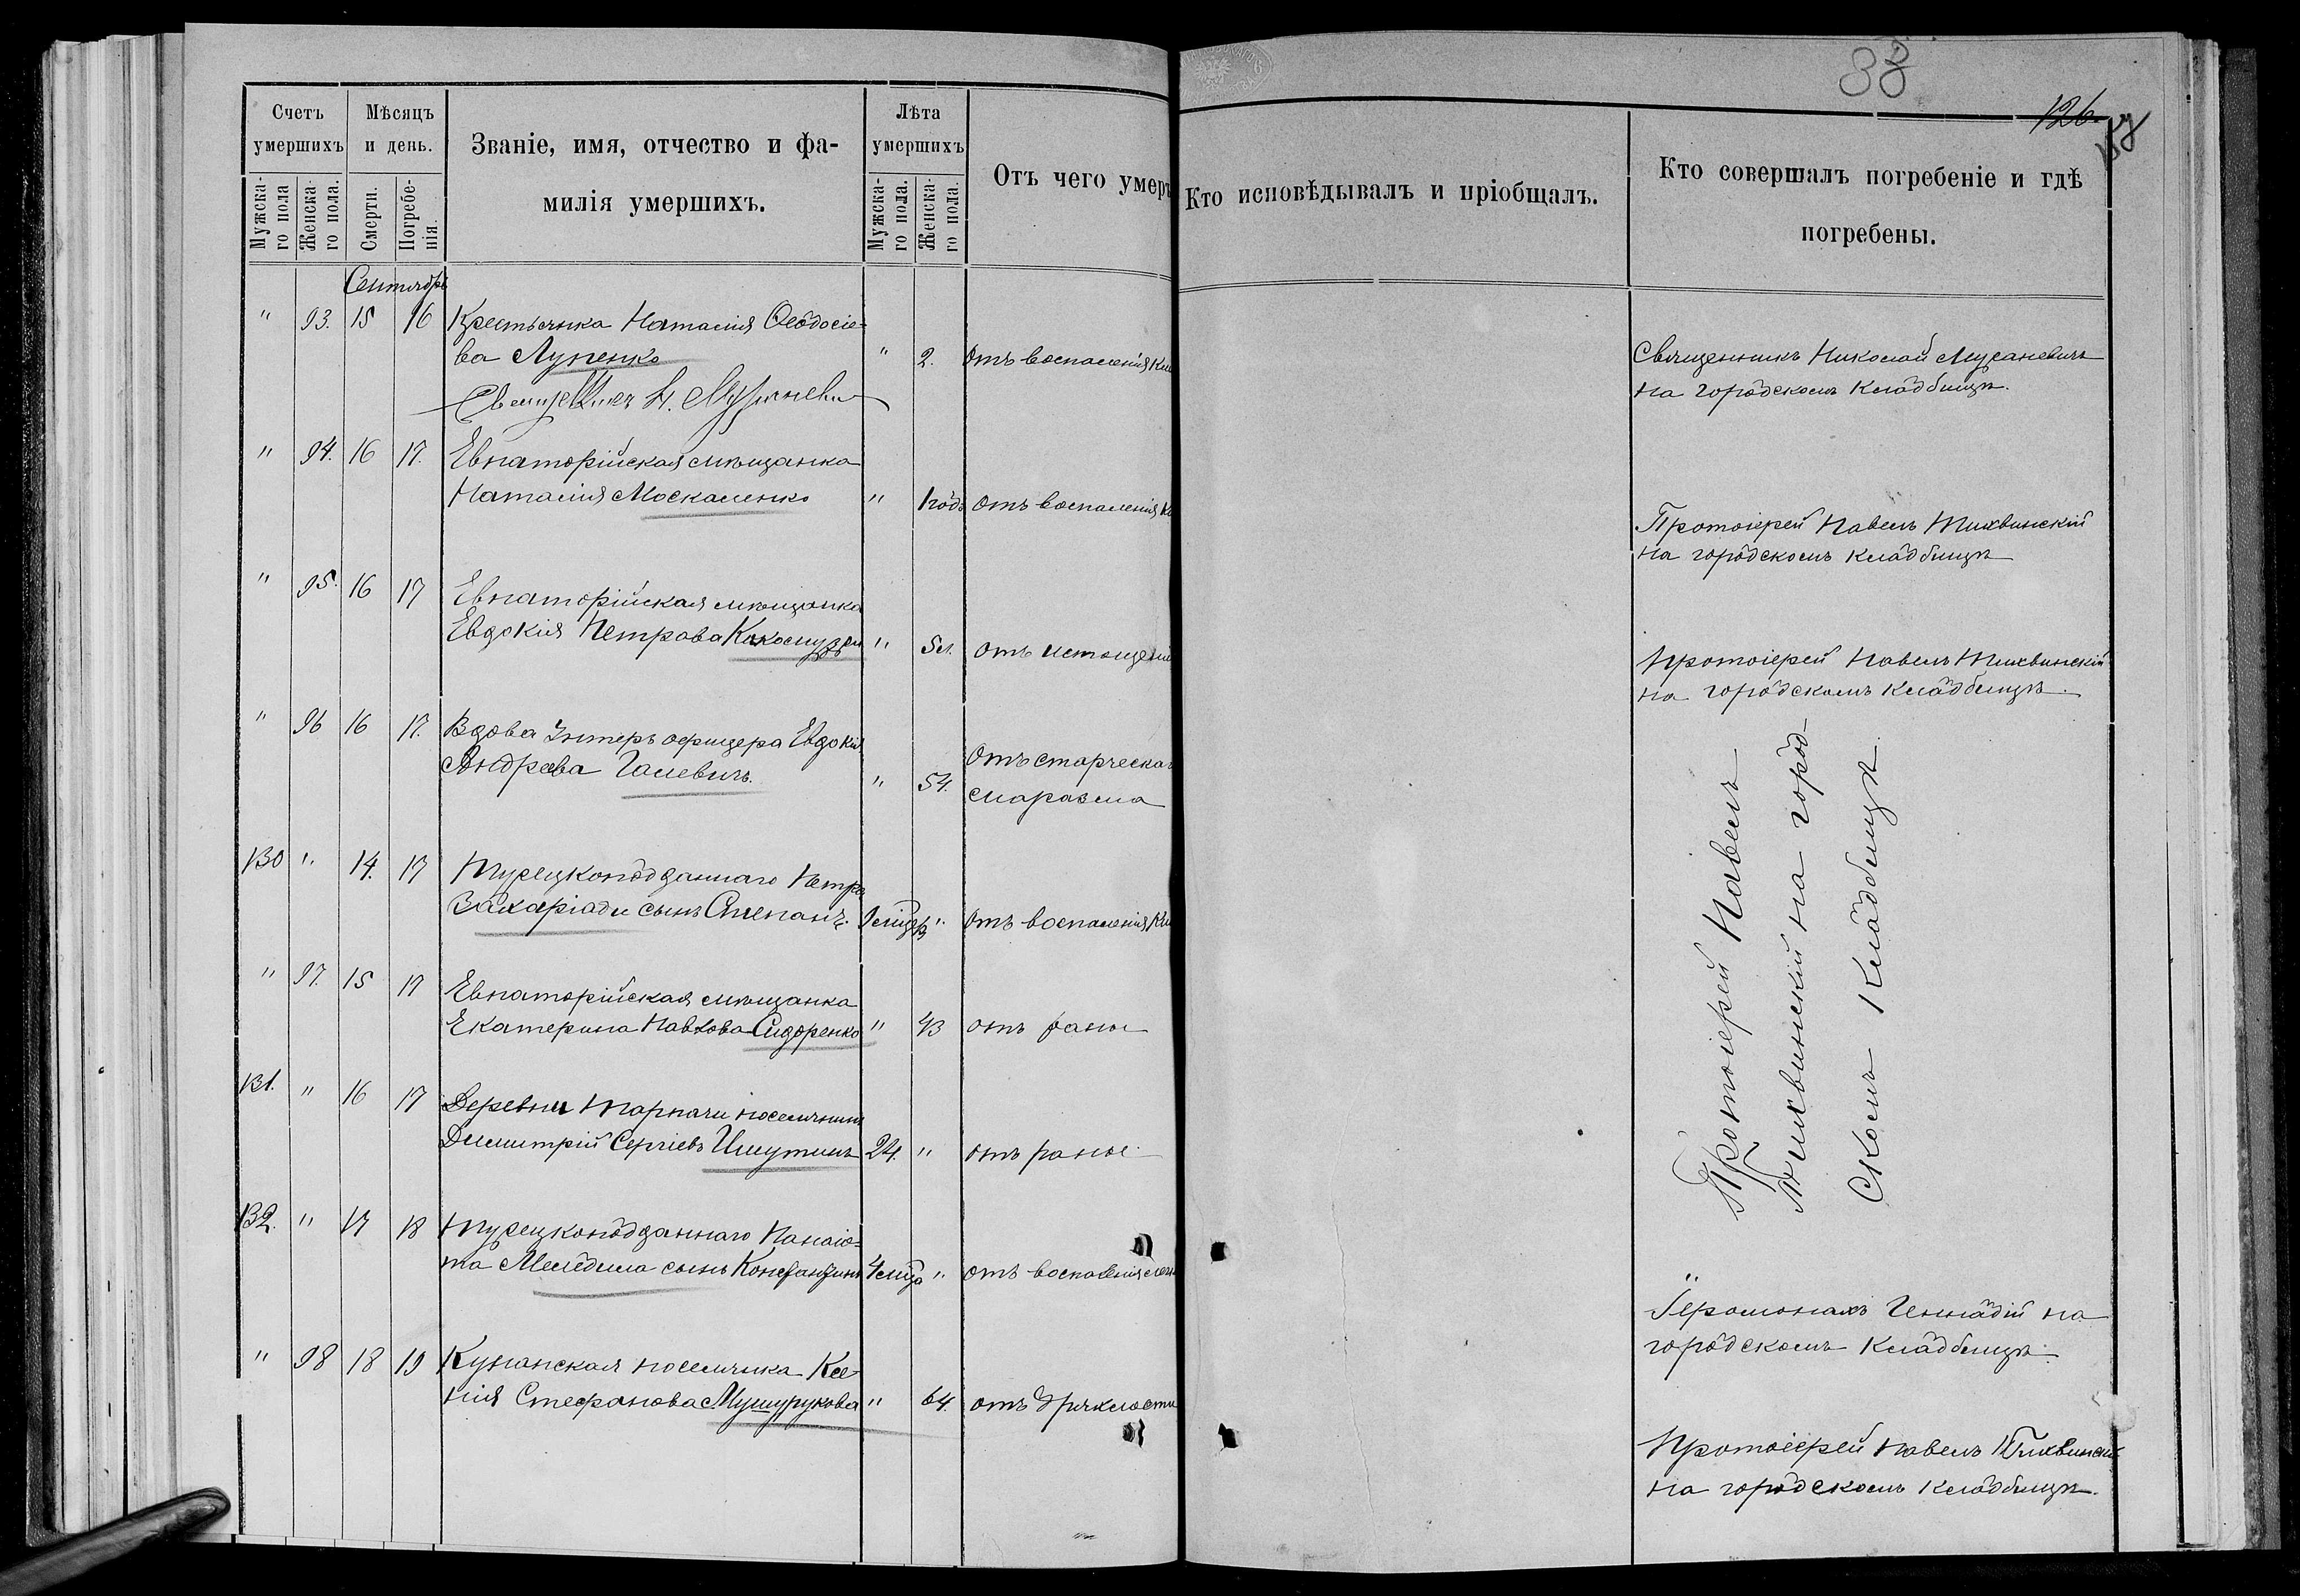 33
126
Счетъ умершихъ
Мѣсяцъ и день.
Званіе, имя, отчество и фа-
милія умершихъ.
Лѣта умершихъ
Отъ чего умеръ
Кто исповѣдывалъ и пріобщалъ.
Кто совершалъ погребеніе и гдѣ
погребены.
Мужска-
го пола
Женска-
го пола.
Смерти.
Погребе-
нія.
Мужска-
го пола.
Женска-
го пола.
Сентябрь
" 93. 15 16 Крестьянка Наталія Ѳеодосіе-
ва Лупенко " 2. Отъ воспаленія Ки
Священникъ Н.
Священникъ Николай
на городскомъ кладбищѣ.
" 94. 16 17. Евпаторійская мѣщанка
Наталія Москаленко " 1 годъ Отъ воспаленія
Протоіерей Павелъ Тихвинскій
на городскомъ кладбищѣ
" 95. 16 17 Евпаторійская мѣщанка
Евдокія Петрова " 5 л. Отъ истощенія
Протоіерей Павелъ Тихвинскій
на городскомъ кладбищѣ.
" 96 16 17. Вдова Унтеръ офицера Евдокія
Андреева Галевичъ. " 54. Отъ старческаго
маразма
130 " 14. 17 Турецкоподданнаго Петра
Захаріади сынъ Степанъ. " Отъ воспаленія Ки
" 97. 15 17 Евпаторійская мѣщанка
Екатерина Павлова Сидоренко " 43 отъ раны
131. " 16 17 Деревни Тарпачи поселянинъ
Димитрій Сергіевъ Ишутинъ 24. " отъ раны
Протоіерей Павелъ
Тихвинскій на город-
скомъ кладбищѣ
132. " 17 18 Турецкоподданнаго Панаіо-
та сынъ Константинъ 4 мца " отъ воспаленія
Іеромонахъ Геннадій на
городскомъ кладбищѣ.
" 98 18 19 поселянка Ксе-
нія Стефанова Мушурукова " 64. отъ дряхлости
Протоіерей Павелъ Тихвинскій
на городскомъ кладбищѣ.